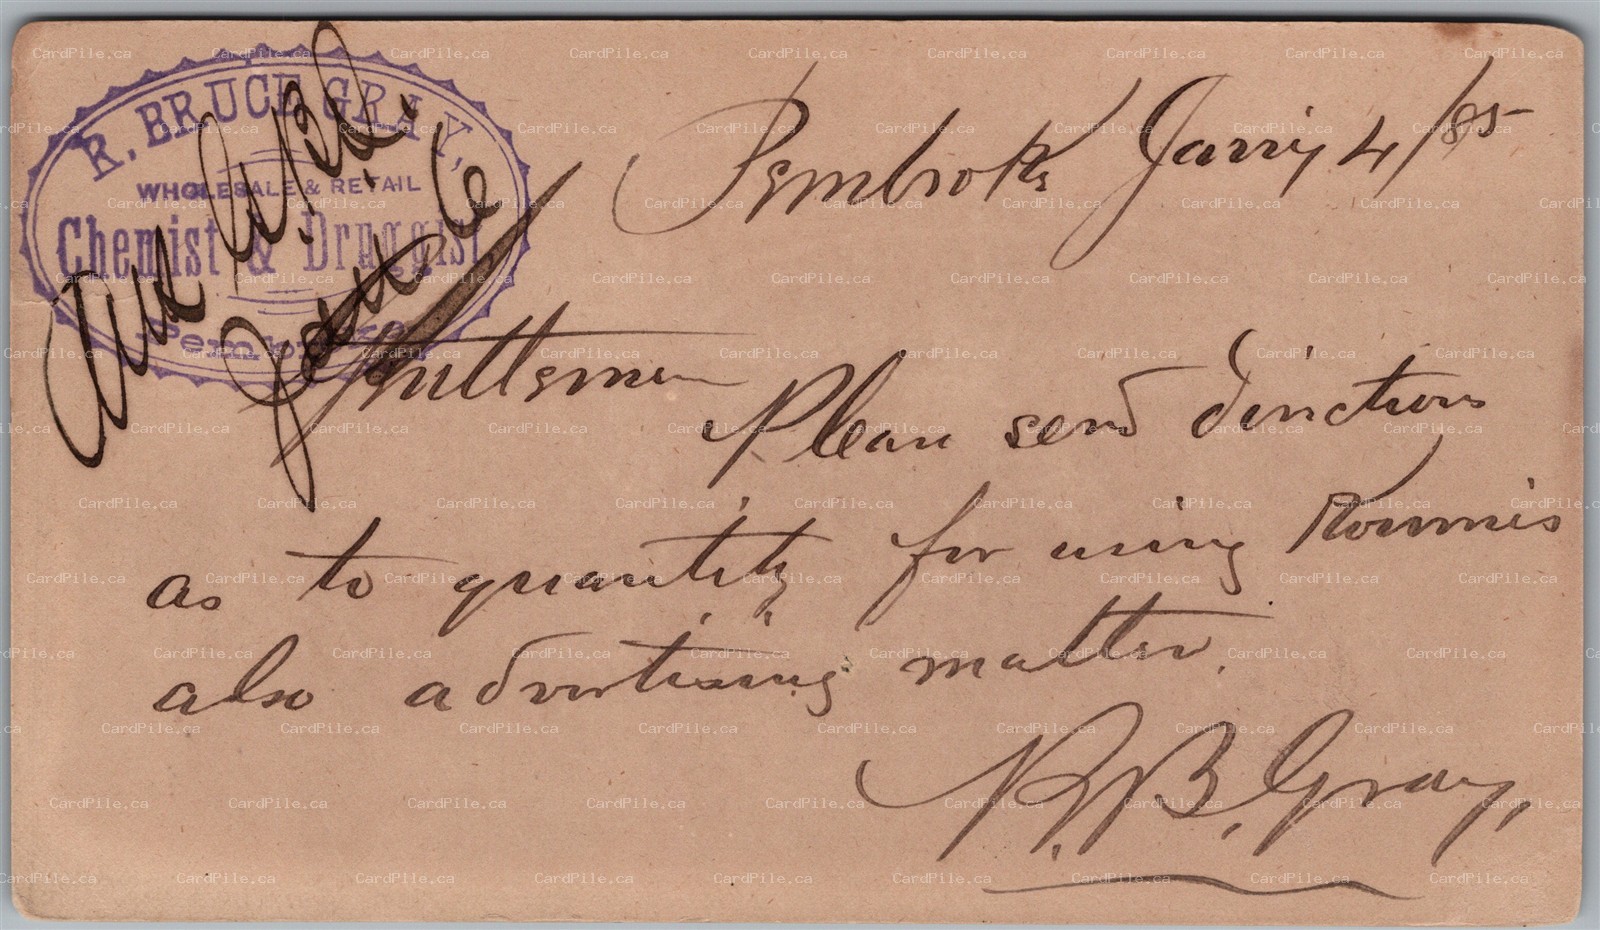 R. BRUCE GRAY,
WHOLESALE & RETAIL
Chemist & Druggist
Pembroke
Pembroke Janry 4/85
Gentlemen
Please send directions
as to quantity for using Koumis
also advertising matter.
R. B. Gray,
CardPile.ca